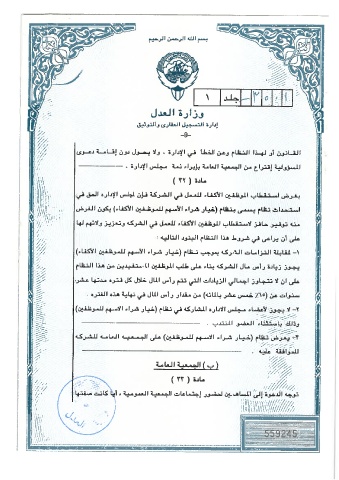 بسم الله الرحمن الرحيم
جلد ١
وزارة العدل
إدارة التسجيل العقاري والتوثيق
-9-
القانون أو لهذا النظام وعن الخطأ في الإدارة ، ولا يحول دون إقامة دعوى
المسؤولية إقتراع من الجمعية العامة بإبراء ذمة مجلس الإدارة .
مادة (٣٢)
بغرض استقطاب الموظفين الأكفاء للعمل في الشركة فإن لمجلس الإدارة الحق في
استحداث نظام يسمى بنظام (خيار شراء الأسهم للموظفين الأكفاء) يكون الغرض
منه توفير حافز لاستقطاب الموظفين الأكفاء للعمل في الشركة وتعزيز ولائهم لها
على أن يراعى في شروط هذا النظام البنود التالية :
١- لمقابلة التزامات الشركة بموجب نظام (خيار شراء الأسهم للموظفين الأكفاء)
يجوز زيادة رأس مال الشركة بناء على طلب الموظفين المستفيدين من هذا النظام
على ان لا تتجاوز اجمالي الزيادات التي تتم رأس المال خلال كل فترة مدتها عشر
سنوات عن (١٥٪ خمس عشر بالمائه) من مقدار رأس المال في نهاية هذه الفترة .
٢- لا يجوز لأعضاء مجلس الادارة المشاركه في نظام (خيار شراء الاسهم للموظفين)
وذلك باستثناء العضو المنتدب .
٣- يعرض نظام (خيار شراء الاسهم للموظفين) على الجمعيه العامه للشركه
للموافقة عليه .
(ب) الجمعية العامة
مادة (٣٣)
توجه الدعوة إلى المساهمين لحضور إجتماعات الجمعية العمومية ، أيا كانت صفتها
العدل
559245